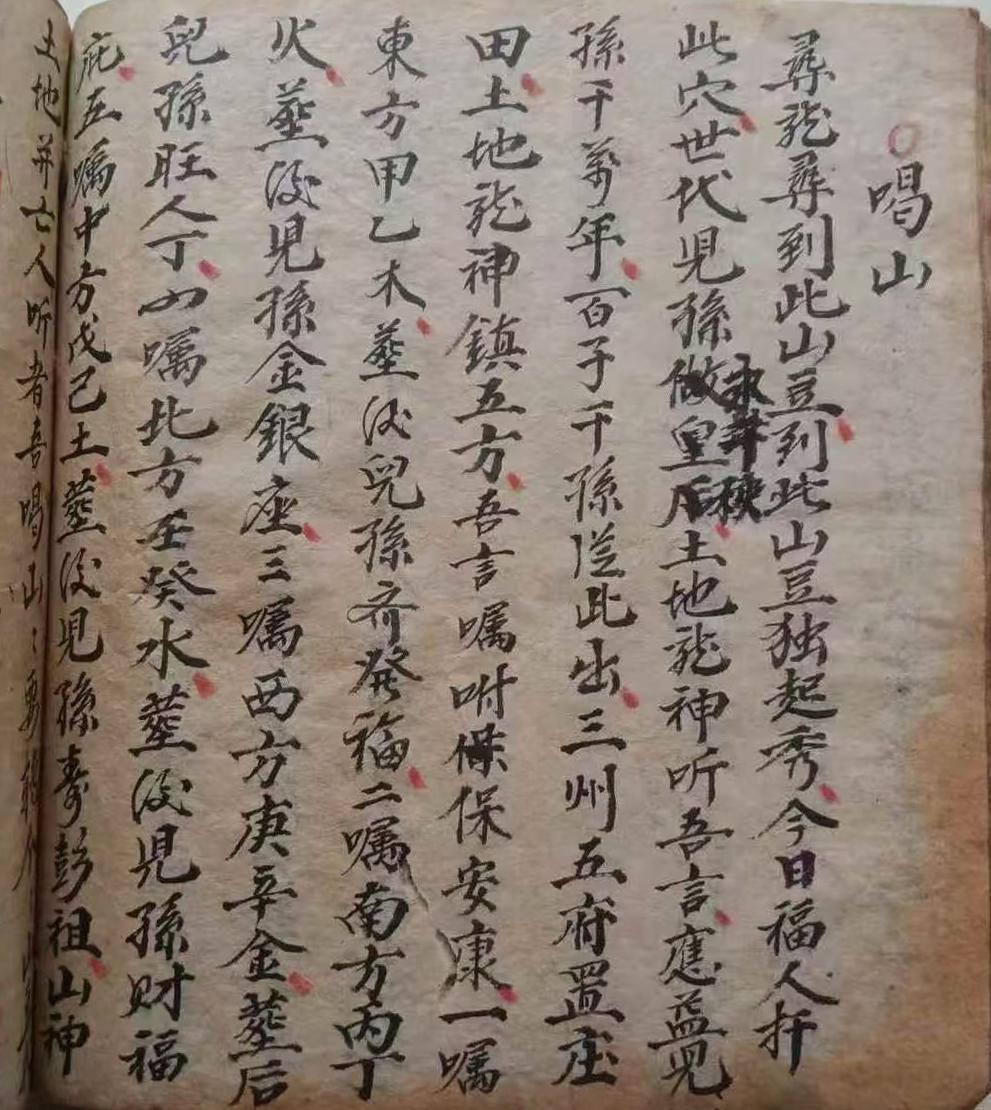 喝山
尋龍尋到此山豆到此山豆独起秀今日福人扦
此穴世代児孫做皇后土地龍神听吾言應益児
永無秧
孫千萬年百子千孫従此出三州五府置庄
田土地龍神鎮五方吾言嘱咐保保安康一嘱
東方甲乙木塟後兒孫齐發福二嘱南方丙丁
火塟後児孫金銀座三嘱西方庚辛金塟后
兒孫旺人丁四嘱北方壬癸水塟後児孫财福
庇五嘱中方戊己土塟後児孫寿彭祖山神
土地并亡人听者吾喝山〻要